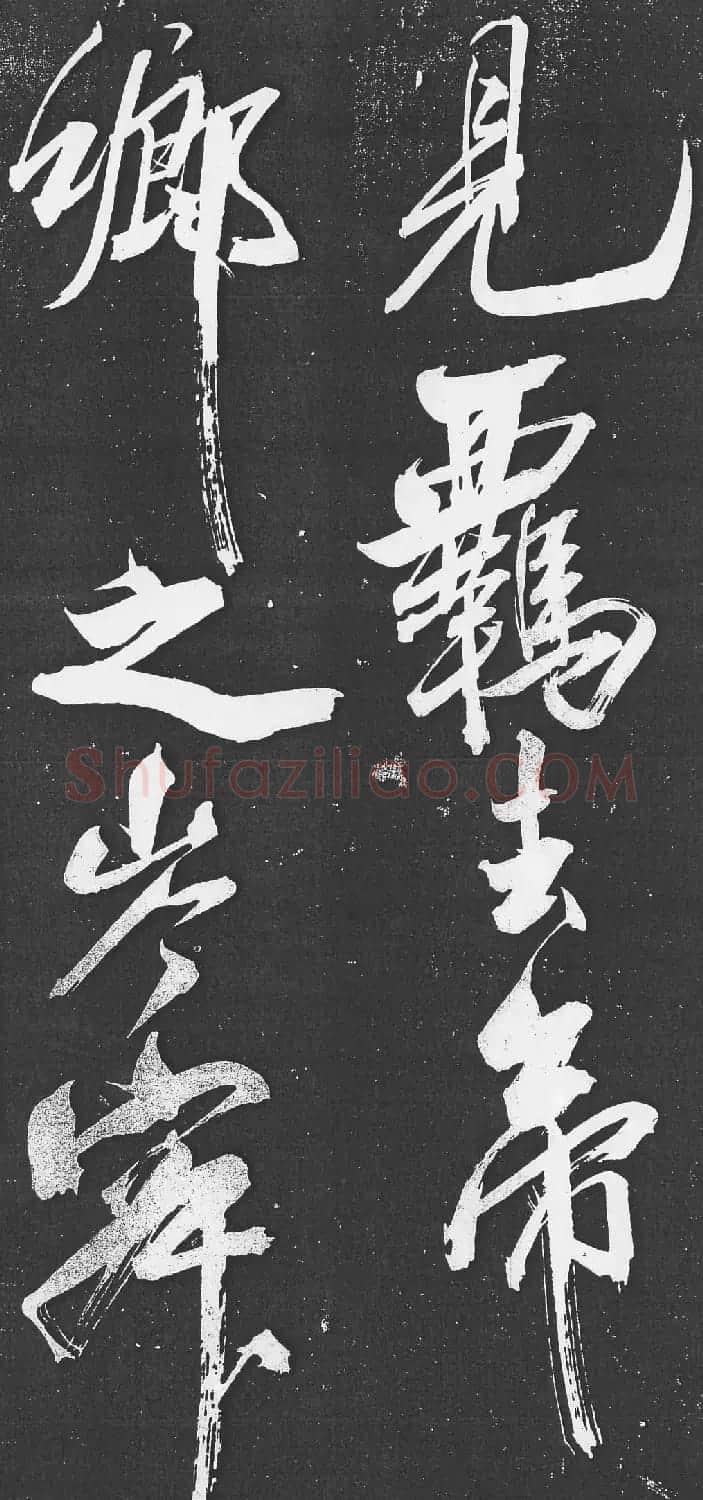 見羈去帝
鄉之岑寂
Shufaziliao.COM